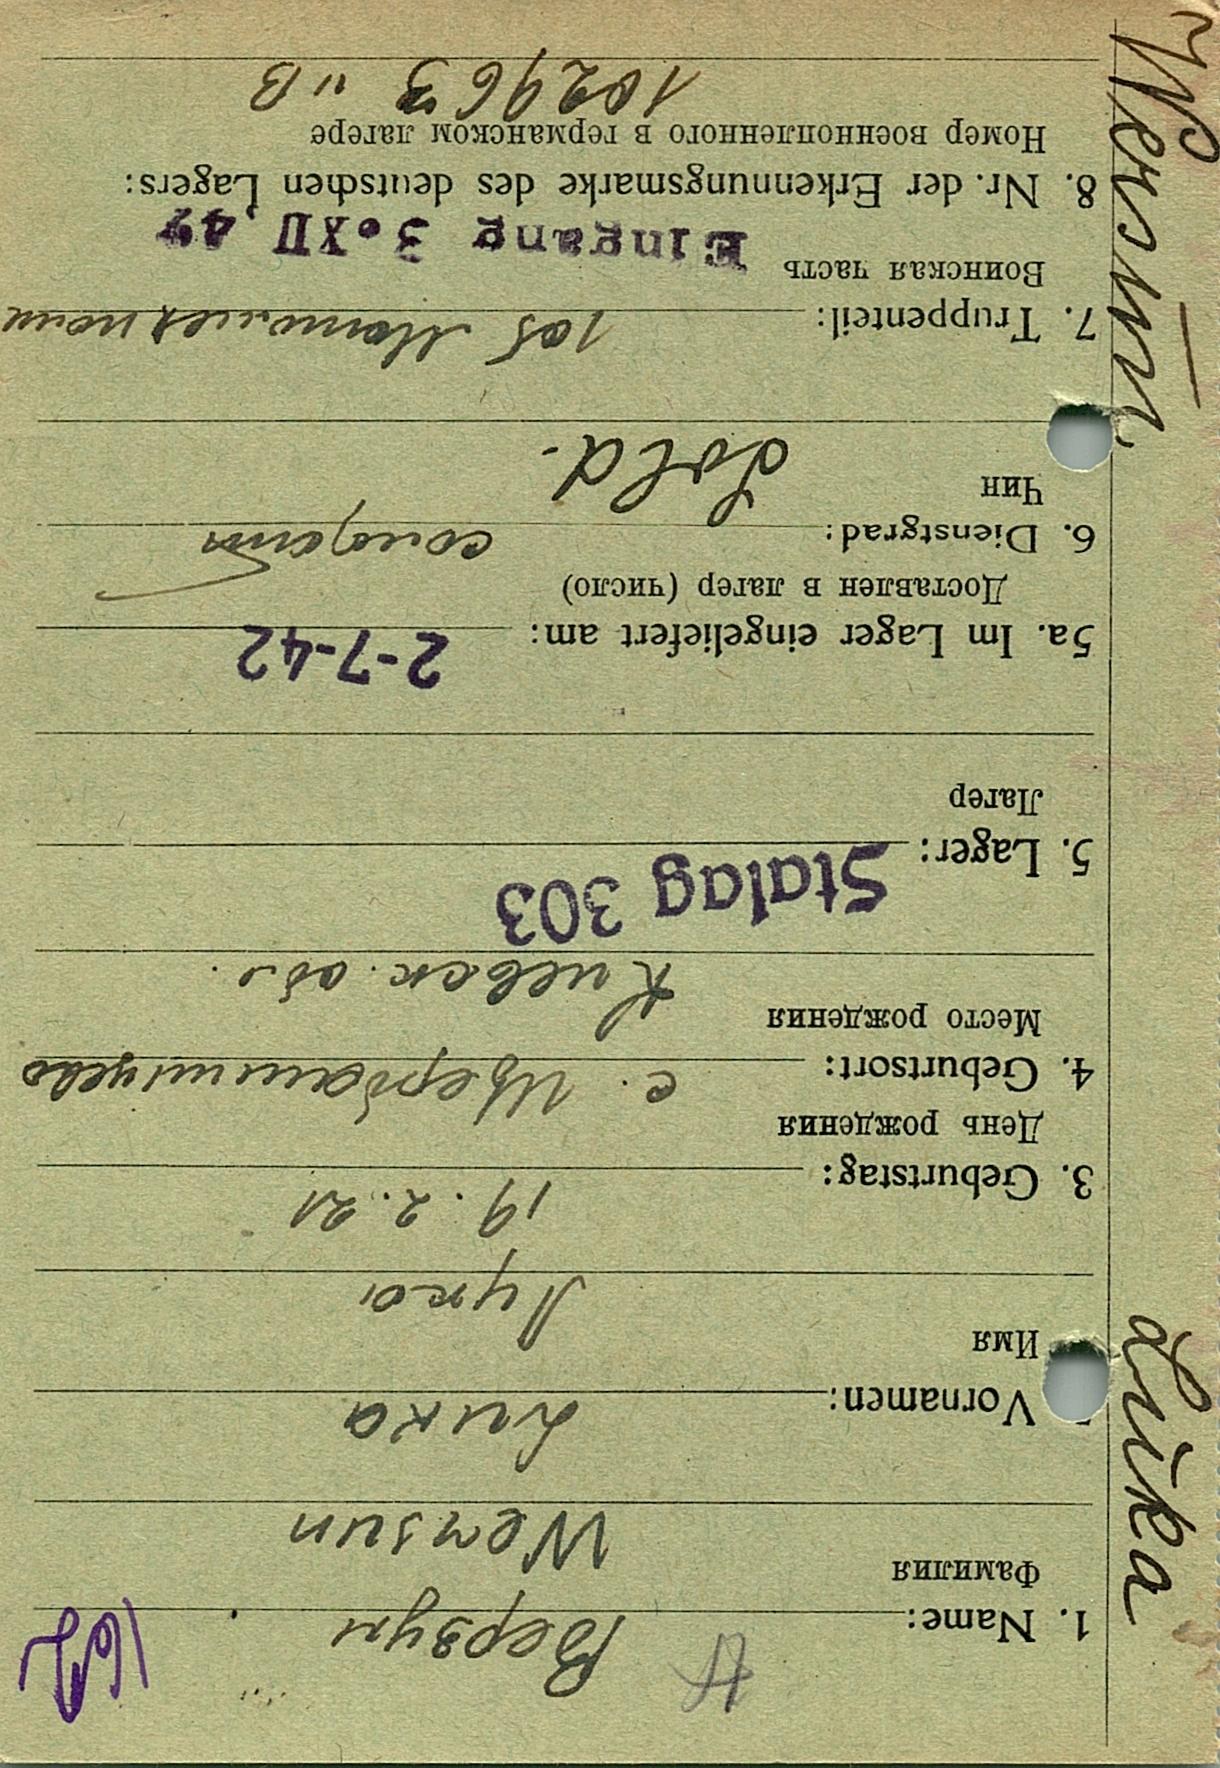 162
1. Name: Верзун
Фамилия
Wersun
Vornamen: Luka
Имя
Лука
3. Geburtstag: 19.2.21
День рождения
4. Geburtsort: с.
Место рождения
Киевск. обл.
5. Lager: Stalag 303
Лагер
5a. Im Lager eingeliefert am: 2-7-42
Доставлен в лагер (число)
6. Dienstgrad: солдат
Чин
Sold.
7. Truppenteil: 105
Воинская часть
Eingang 3.XII.42
8. Nr. der Erkennungsmarke des deutschen Lagers:
Номер военнопленного в германском лагере
102963 "B
Luka Wersun